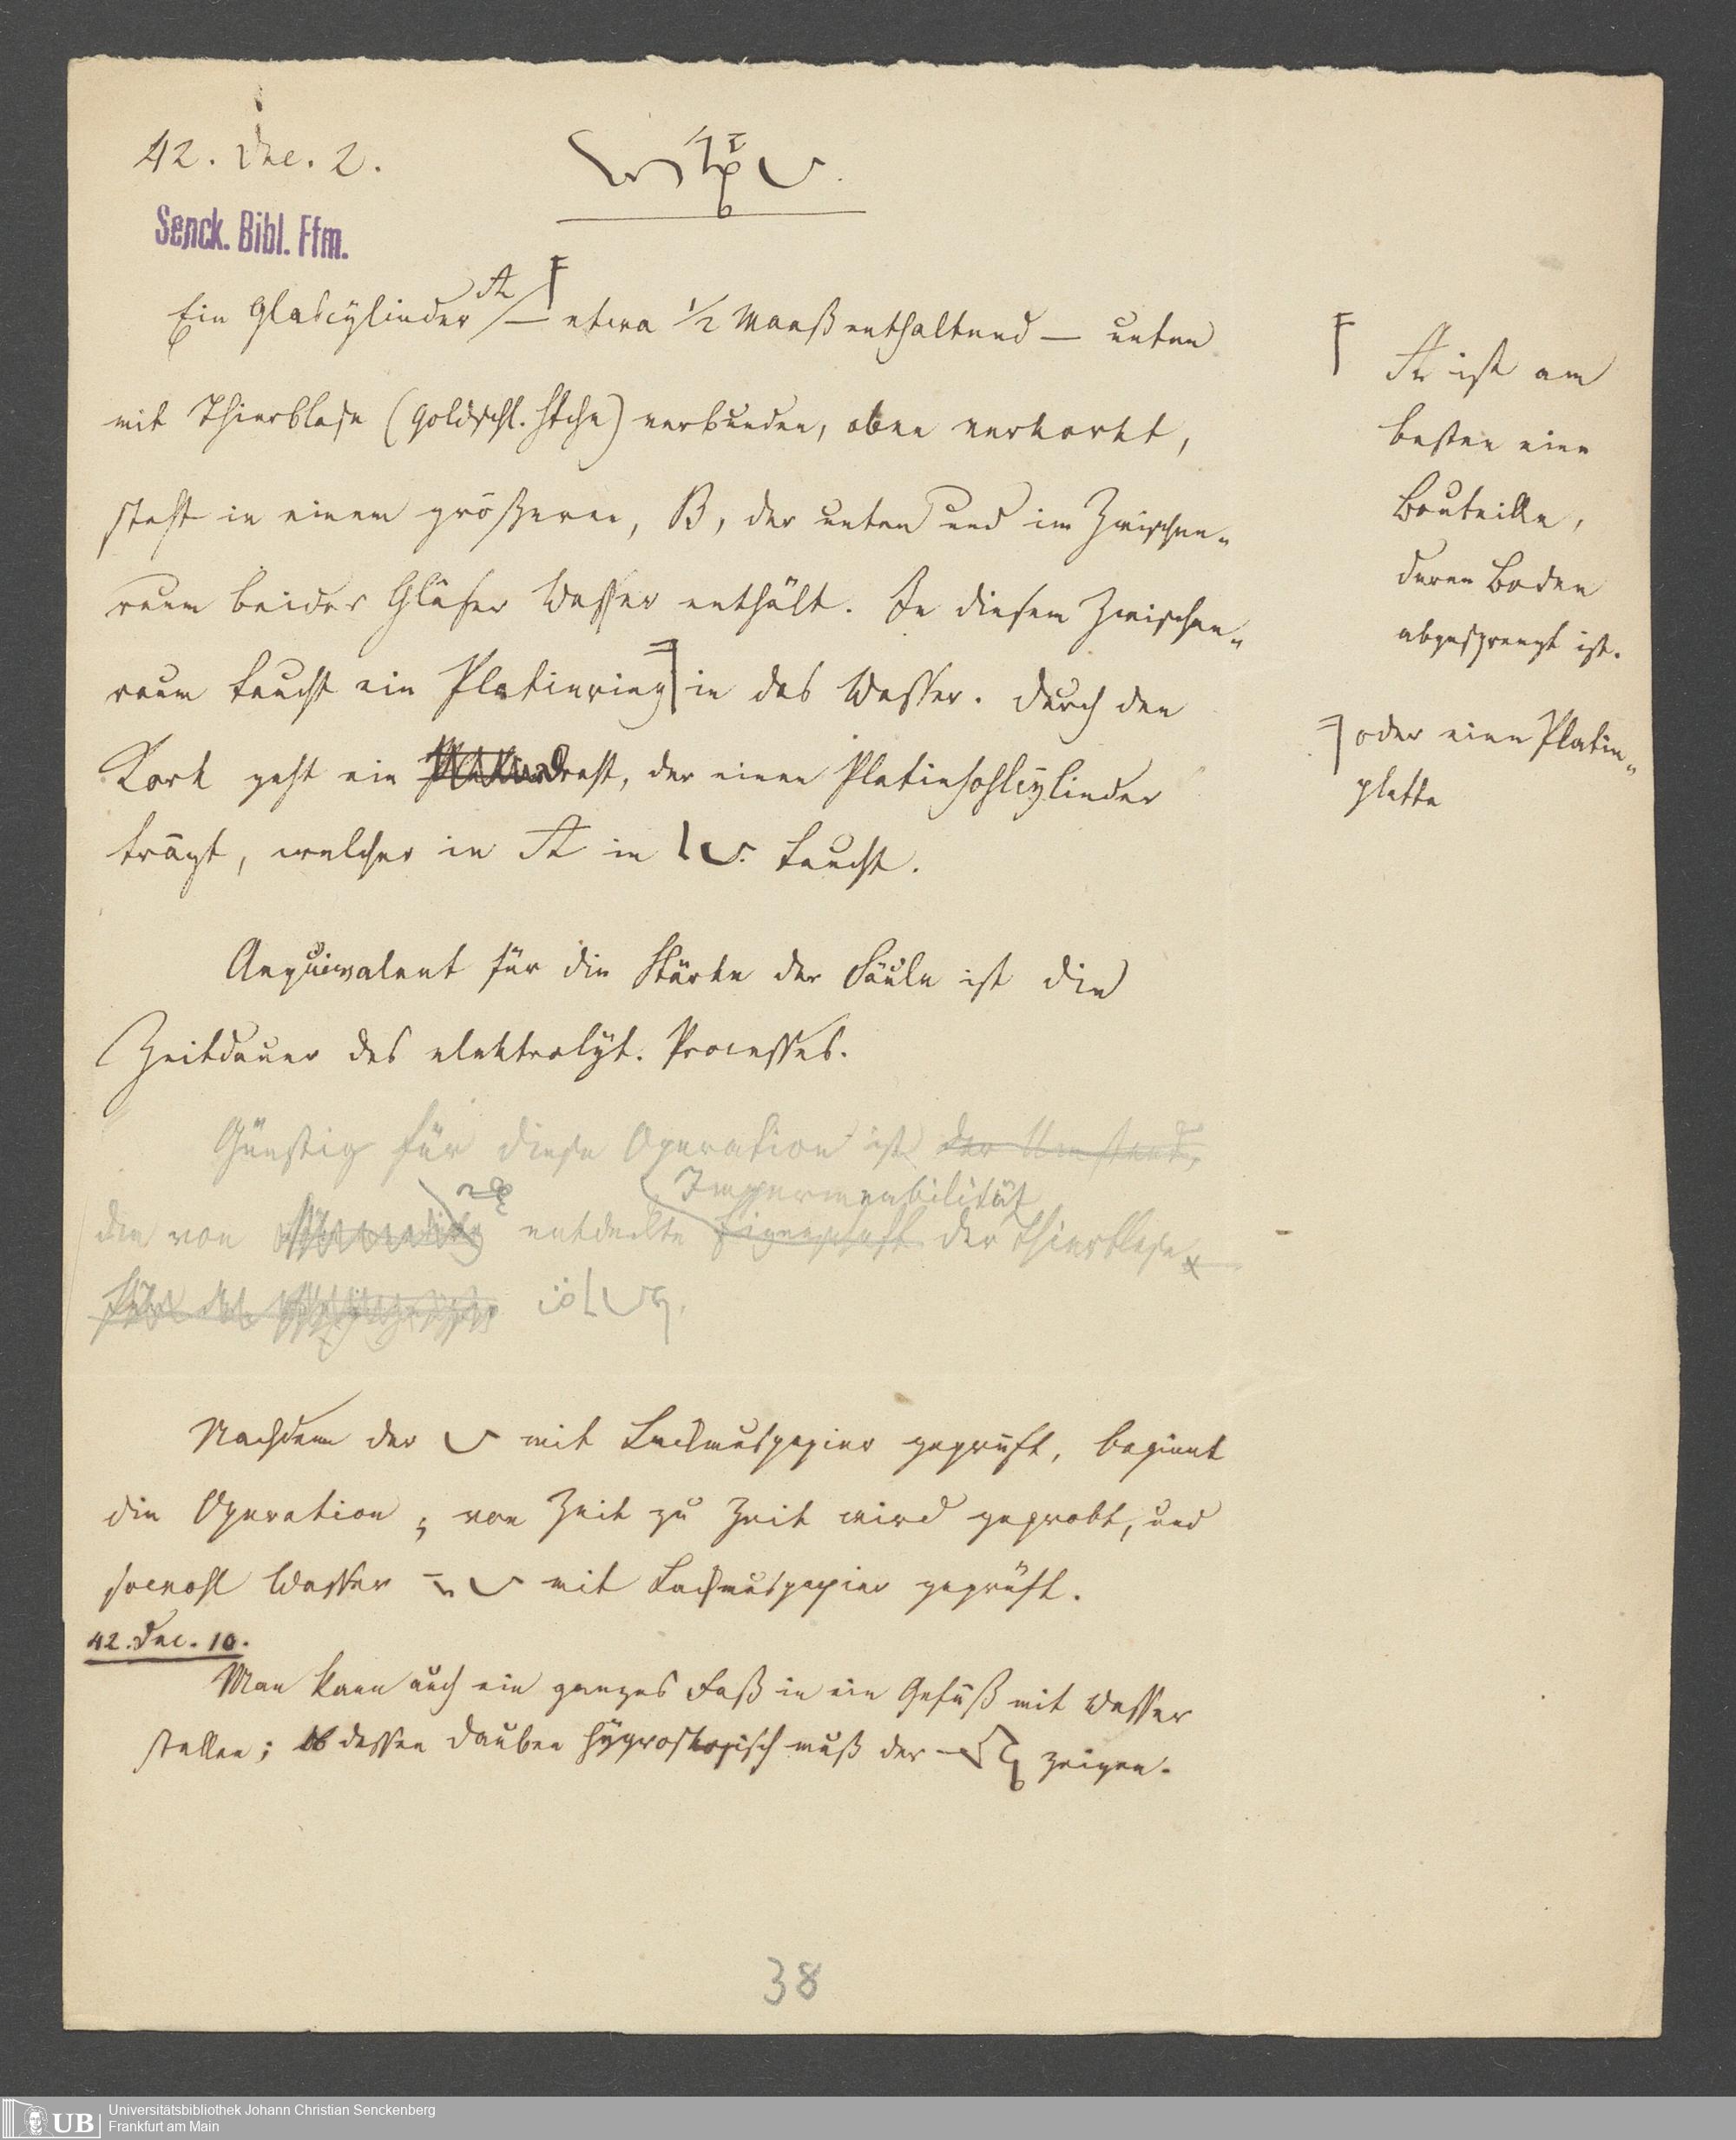 42. Dec. 2.
Senck. Bibl. Ffm.
Ein Glascylinder A – etwa 1/2 Maaß enthaltend – unten
mit Thierblase (Goldschl. Htchn) verbunden, oben verkorkt,
steht in einem größeren, B, der unten und im Zwischen-
raum beider Gläser Wasser enthält. In diesem Zwischen-
raum taucht ein Platinring in das Wasser. Durch den
Kork geht ein Draht, der einen Platinhohlcylinder
trägt, welcher in A in taucht.
A ist am
besten eine
Bouteille,
deren Boden
abgesprengt ist.
oder eine Platin-
platte
Aequivalent für die Stärke der Säule ist die
Zeitdauer des elektrolyt. Processes.
Günstig für diese Operation ist der Umstand,
Impermeabilität
die von entdeckte Eigenschaft der Thierblase
Nachdem der mit Lackmuspapier geprüft, beginnt
die Operation; von Zeit zu Zeit wird geprobt, und
sowohl Wasser mit Lackmuspapier geprüft.
42. Dec. 10.
Man kann auch ein ganzes Faß in ein Gefäß mit Wasser
stellen; ob dessen Dauben hygroskopisch muß der zeigen.
38
UB
Universitätsbibliothek Johann Christian Senckenberg
Frankfurt am Main